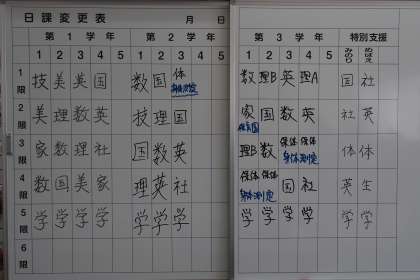 日課変更表 月 日
第1学年 第2学年
1 2 3 4 5 1 2 3 4 5
1限 技 美 英 国 数 国 体
身体測定
2限 美 理 数 英 技 理 国
3限 家 数 理 社 国 数 英
4限 数 国 美 家 理 英 社
5限 学 学 学 学 学 学 学
6限
第3学年 特別支援
1 2 3 4 5 みのり めばえ
数 理B 英 理A 国 社
家 国 数 英 社 英
保育園
理B 数 保体 保体 体 体
身体測定
保体 保体 国 社 英 生
身体測定
学 学 学 学 学 学